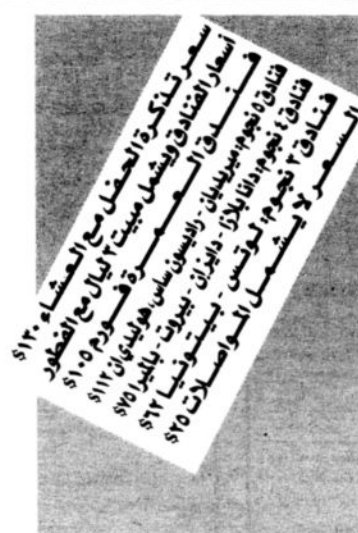 سعر تذكرة الحفل مع العشاء ١٣٠$
أسعار الفنادق ويشمل مبيت ٣ ليال مع الفطور
فندق العمرة فورم ١٠٥$
فنادق ٥ نجوم: ميريديان - راديسون ساس، هوليدي ان ١١٢$
فنادق ٤ نجوم: دانا بلازا - دايزان - بيروت - بالميرا ٧٥$
فنادق ٣ نجوم: لوتس - بيتونيا ٦٢$
السعر لا يشمل المواصلات ٢٥$